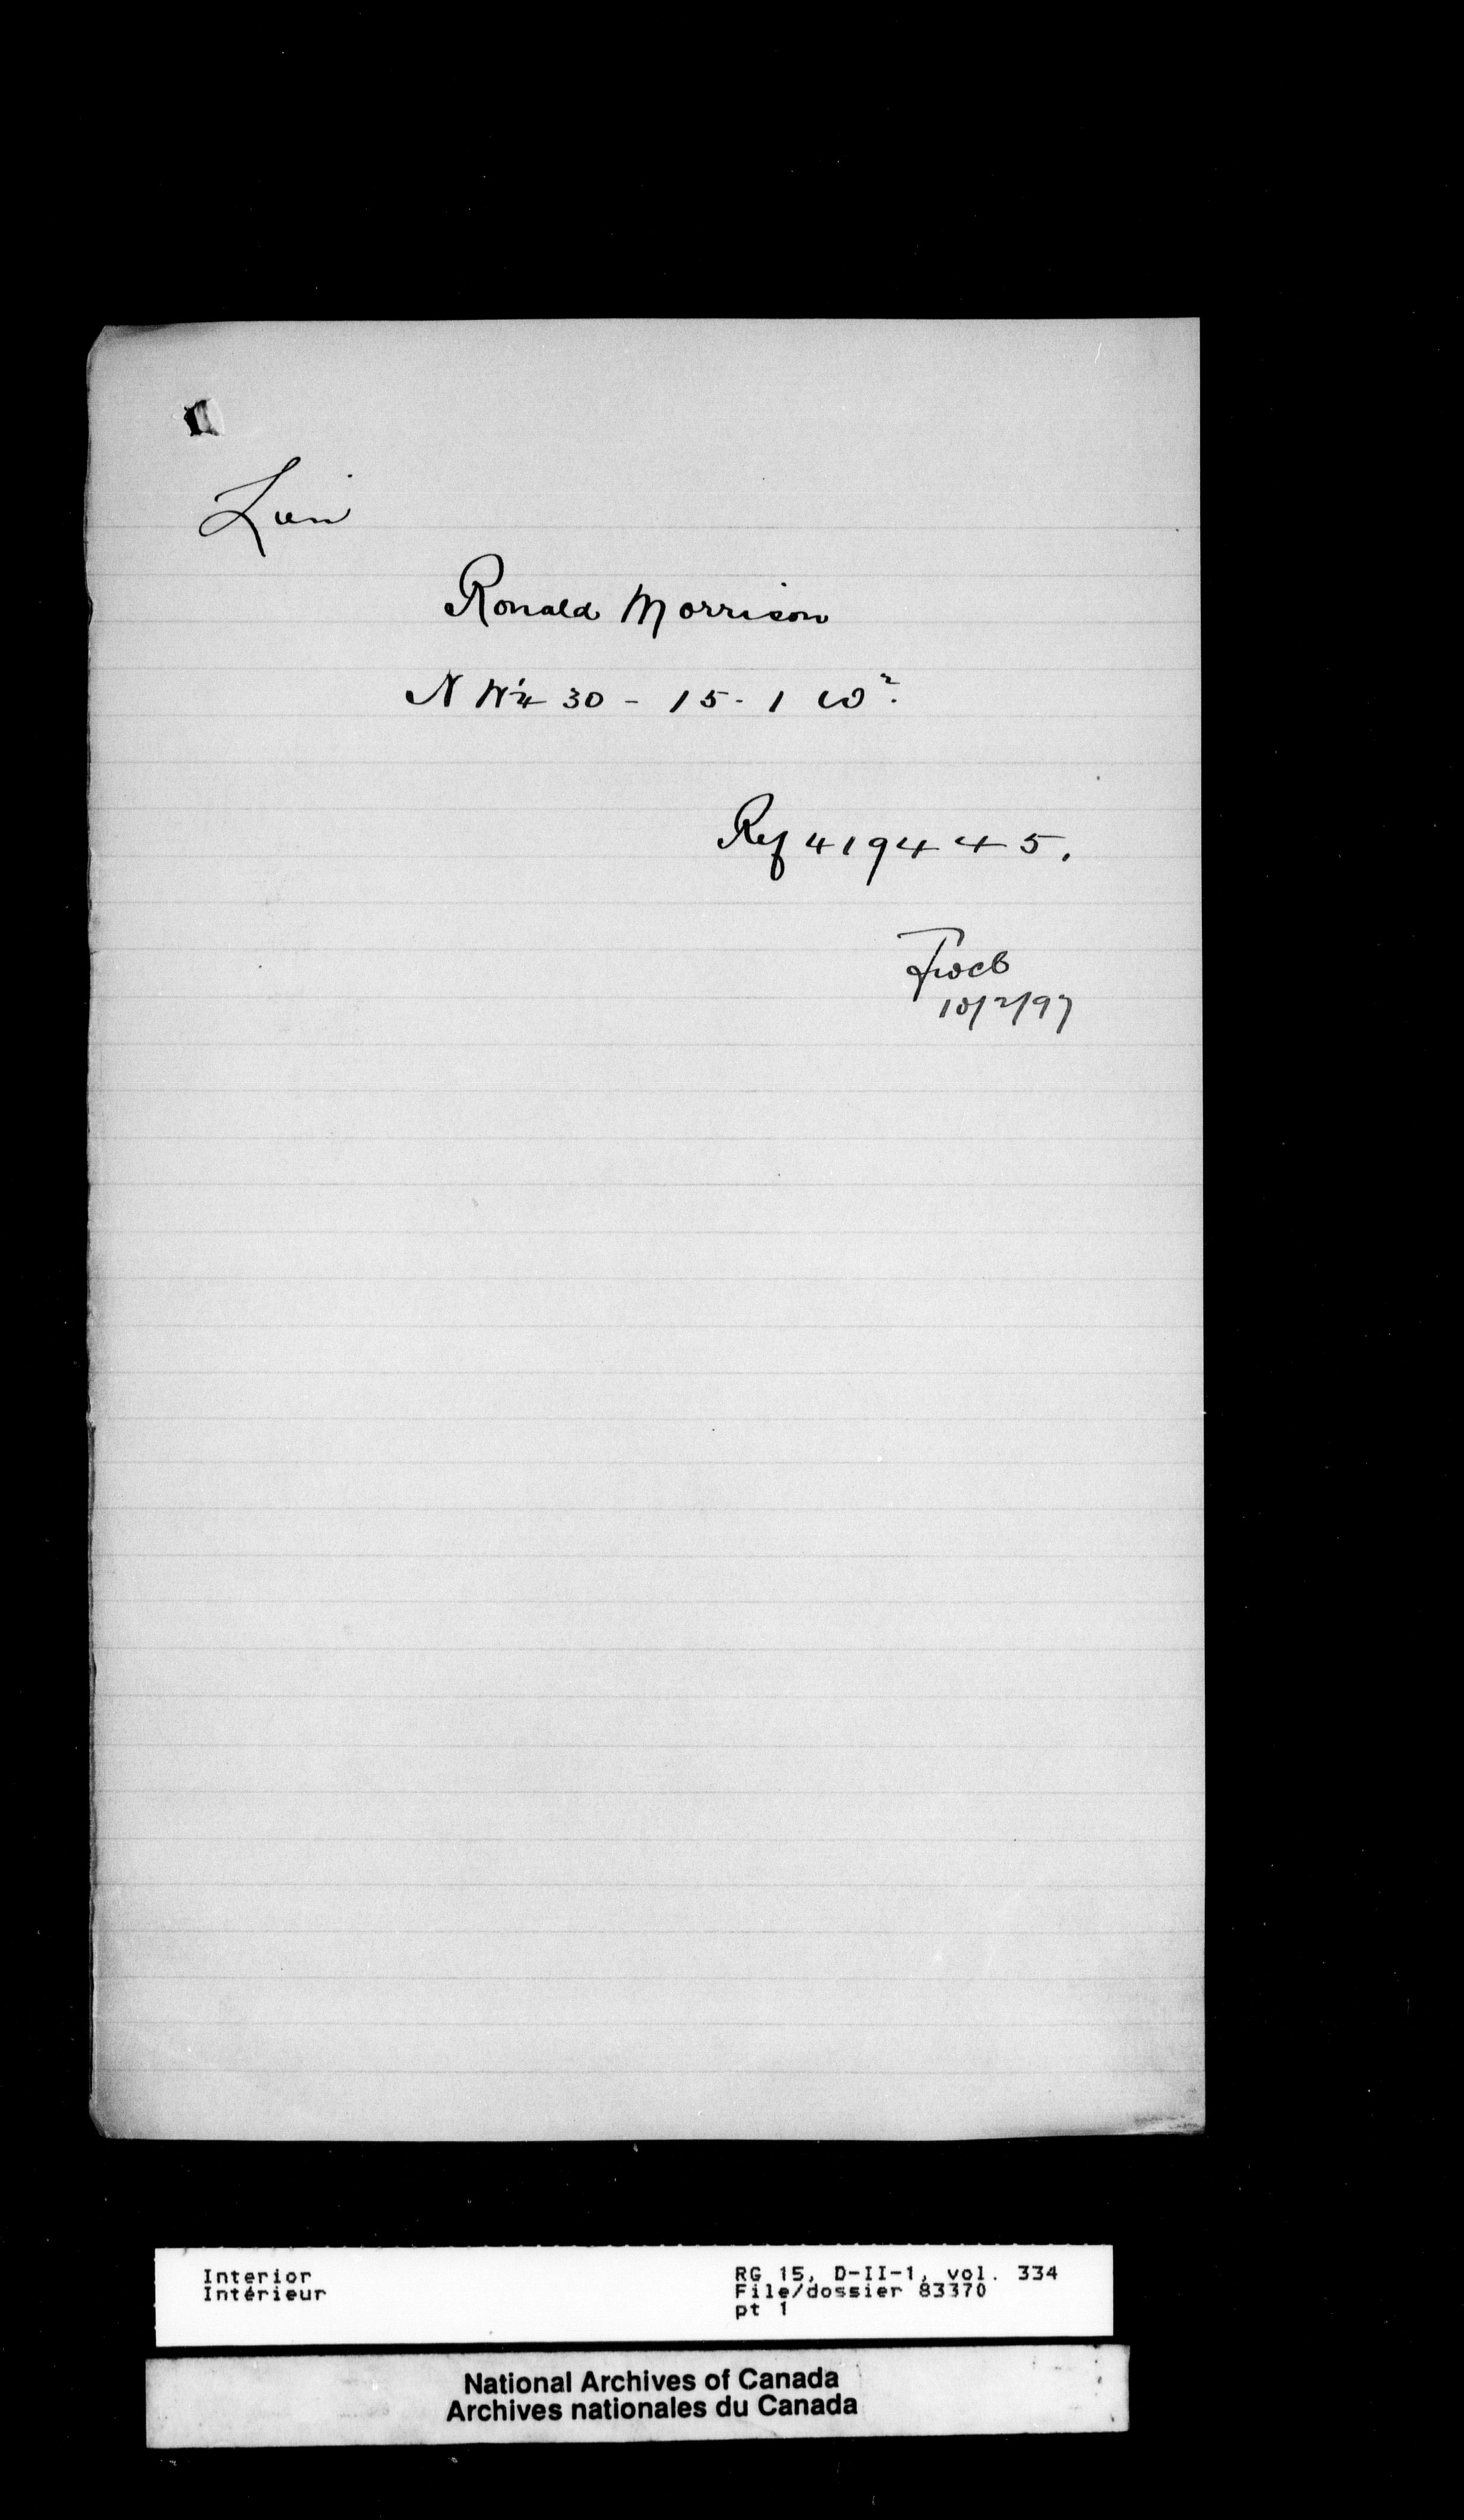 Lien
Ronald Morrison
N W¼ 30 - 15 - 1 W².
Ref 419445.
FWCB
10/2/97
Interior
Intérieur
RG 15, D-II-1, vol. 334
File/dossier 83370
pt 1
National Archives of Canada
Archives nationales du Canada